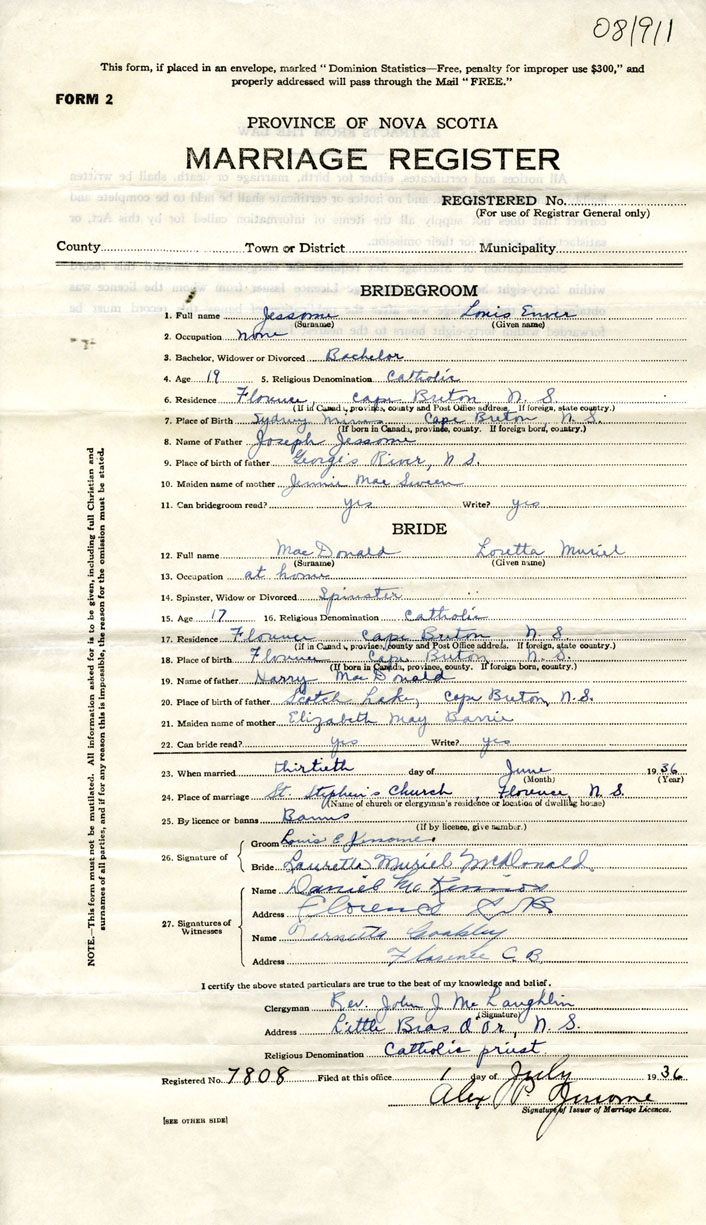 08/911
This form, if placed in an envelope, marked “Dominion Statistics—Free, penalty for improper use $300,” and
properly addressed will pass through the Mail “FREE.”
FORM 2
PROVINCE OF NOVA SCOTIA
MARRIAGE REGISTER
REGISTERED No.
(For use of Registrar General only)
County Town or District Municipality
BRIDEGROOM
1. Full name Jessome Louis Enver
(Surname) (Given name)
2. Occupation none
3. Bachelor, Widower or Divorced Bachelor
4. Age 19 5. Religious Denomination Catholic
6. Residence Florence, Cape Breton N. S.
(If in Canada, province, county and Post Office address. If foreign, state country.)
7. Place of Birth Sydney Mines Cape Breton N. S.
(If born in Canada, province, county. If foreign born, country.)
8. Name of Father Joseph Jessome
9. Place of birth of father George's River, N. S.
10. Maiden name of mother Jennie Mac Sween
11. Can bridegroom read? yes Write? yes
BRIDE
12. Full name Mac Donald Loretta Muriel
(Surname) (Given name)
13. Occupation at home
14. Spinster, Widow or Divorced Spinster
15. Age 17 16. Religious Denomination Catholic
17. Residence Florence Cape Breton N. S.
(If in Canada, province, county and Post Office address. If foreign, state country.)
18. Place of birth Florence Cape Breton N. S.
(If born in Canada, province, county. If foreign born, country.)
19. Name of father Harry Mac Donald
20. Place of birth of father Scotch Lake, Cape Breton, N. S.
21. Maiden name of mother Elizabeth May Barrie
22. Can bride read? yes Write? yes
23. When married thirtieth day of June 1936
(Month) (Year)
24. Place of marriage St. Stephen's Church, Florence, N S
(Name of church or clergyman's residence or location of dwelling house)
25. By licence or banns Banns
(If by licence, give number.)
26. Signature of
Groom Louis E Jessome
Bride Lauretta Muriel McDonald
27. Signatures of Witnesses
Name Daniel Mc Kinnon
Address Florence C B
Name Coakley
Address Florence C. B.
I certify the above stated particulars are true to the best of my knowledge and belief.
Clergyman Rev. John J. Mc Laughlin
(Signature)
Address Little Bras d'Or, N. S.
Religious Denomination Catholic priest
Registered No. 7808 Filed at this office 1 day of July 1936
Alex P. Jessome
Signature of Issuer of Marriage Licences.
[SEE OTHER SIDE]
NOTE.—This form must not be mutilated. All information asked for is to be given, including full Christian and
surnames of all parties, and if for any reason this is impossible, the reason for the omission must be stated.